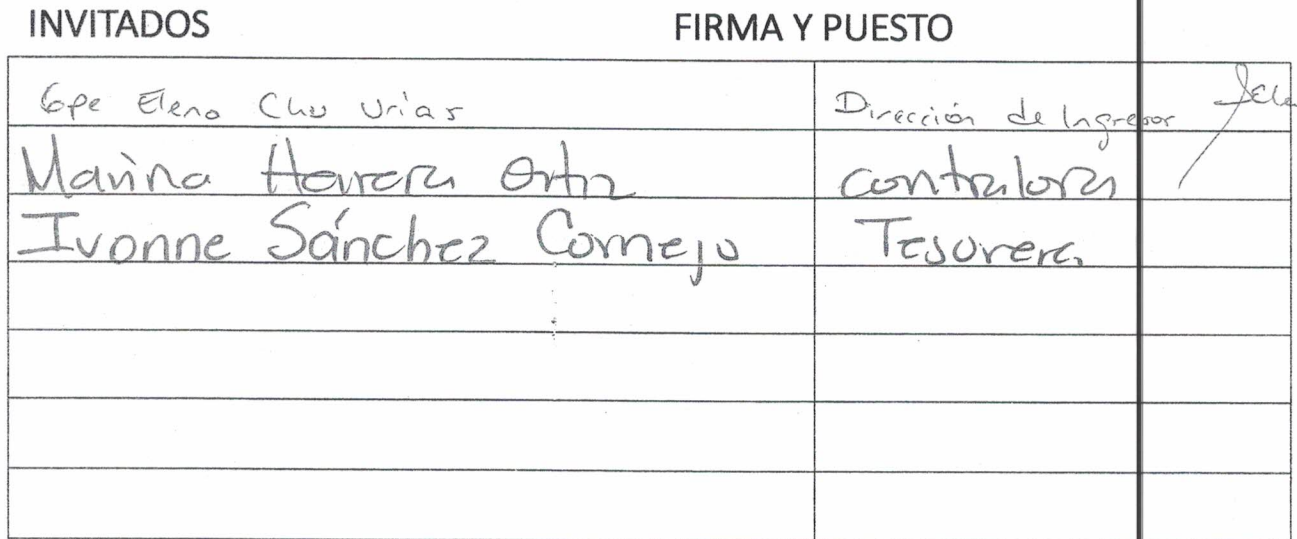 INVITADOS FIRMA Y PUESTO
Gpe Elena Chu Urias Dirección de Ingresos
Marina Herrera Ortiz contralora
Ivonne Sánchez Cornejo Tesorera